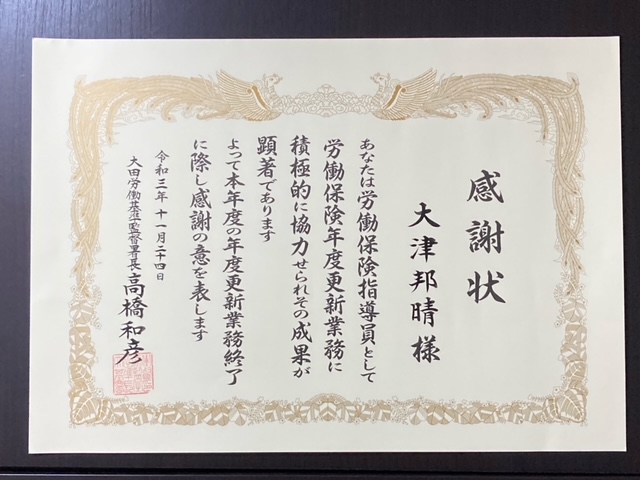 感謝状
大津邦晴様
あなたは労働保険指導員として
労働保険年度更新業務に
積極的に協力せられその成果が
顕著であります
よって本年度の年度更新業務終了
に際し感謝の意を表します
令和三年十一月二十四日
大田労働基準監督署長 高橋和彦